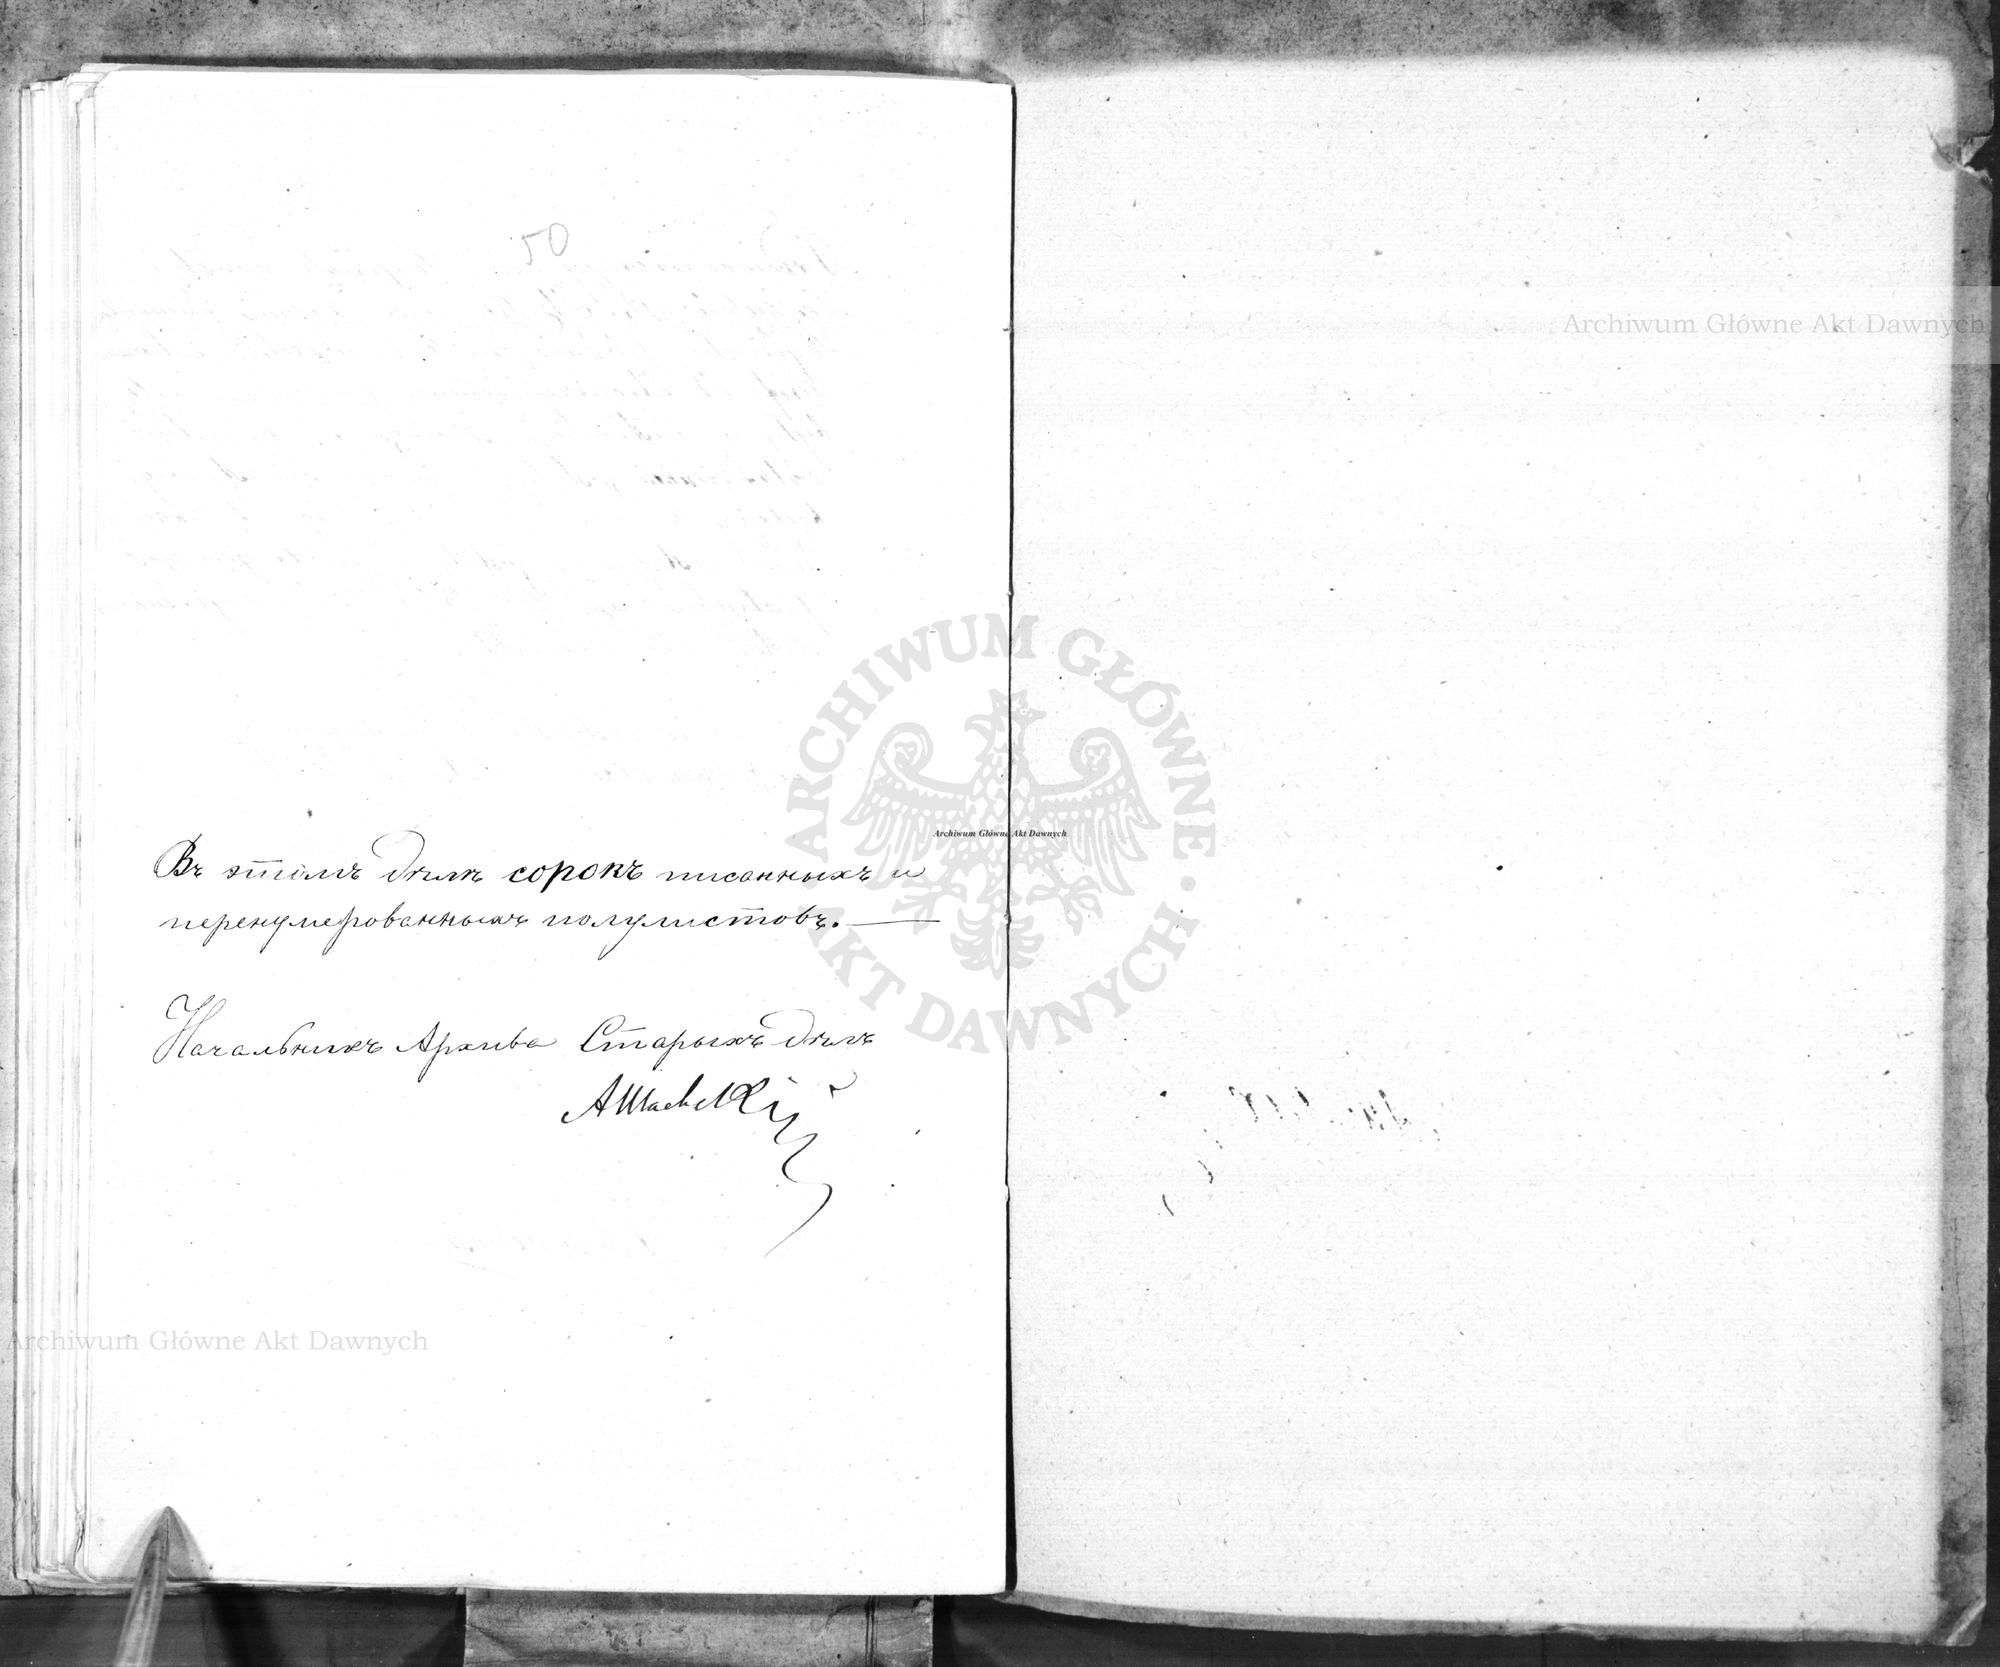 50
Въ этомъ дѣлѣ сорокъ писанныхъ и
перенумерованныхъ полулистовъ. —
Начальникъ Архива Старыхъ дѣлъ
Archiwum Główne Akt Dawnych
ARCHIWUM GŁÓWNE AKT DAWNYCH
Archiwum Główne Akt Dawnych
Archiwum Główne Akt Dawnych